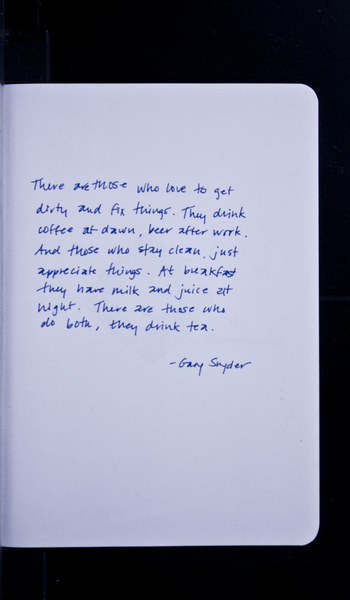 There are those who love to get
dirty and fix things. They drink
coffee at dawn, beer after work.
And those who stay clean, just
appreciate things. At breakfast
they have milk and juice at
night. There are those who
do both, they drink tea.
- Gary Snyder